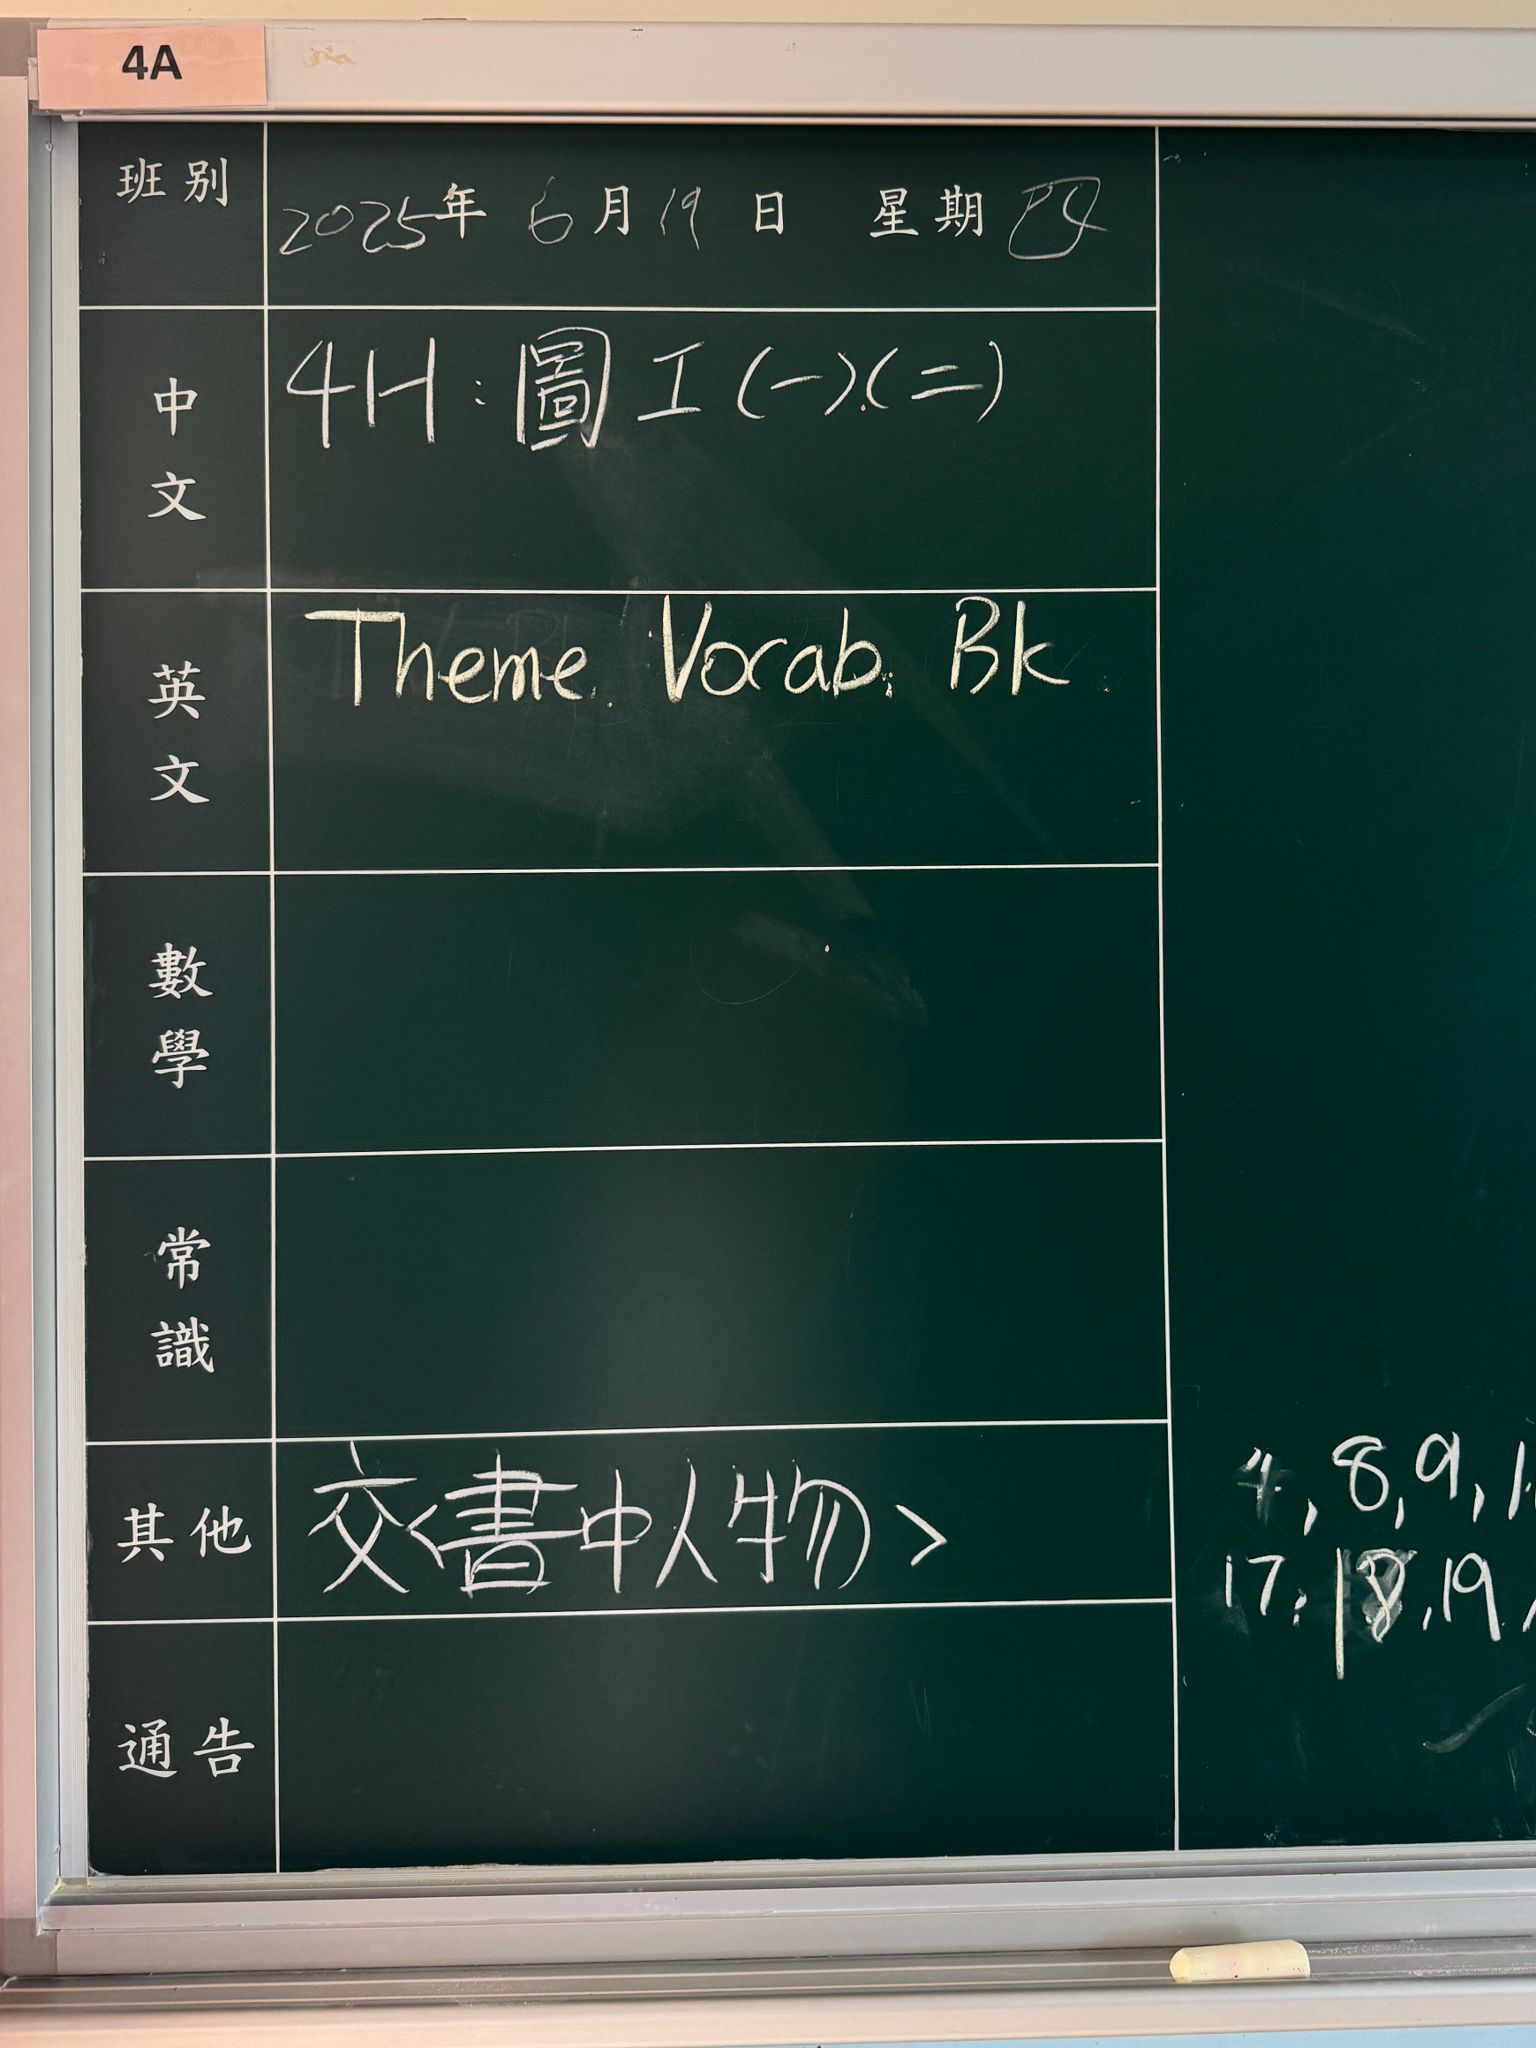 4A
班別
2025年 6月19日 星期四
中文
4H:圖工(一).(二)
英文
Theme. Vocab. Bk
數學
常識
其他
交<書中人物>
通告
4, 8, 9,
17, 18, 19